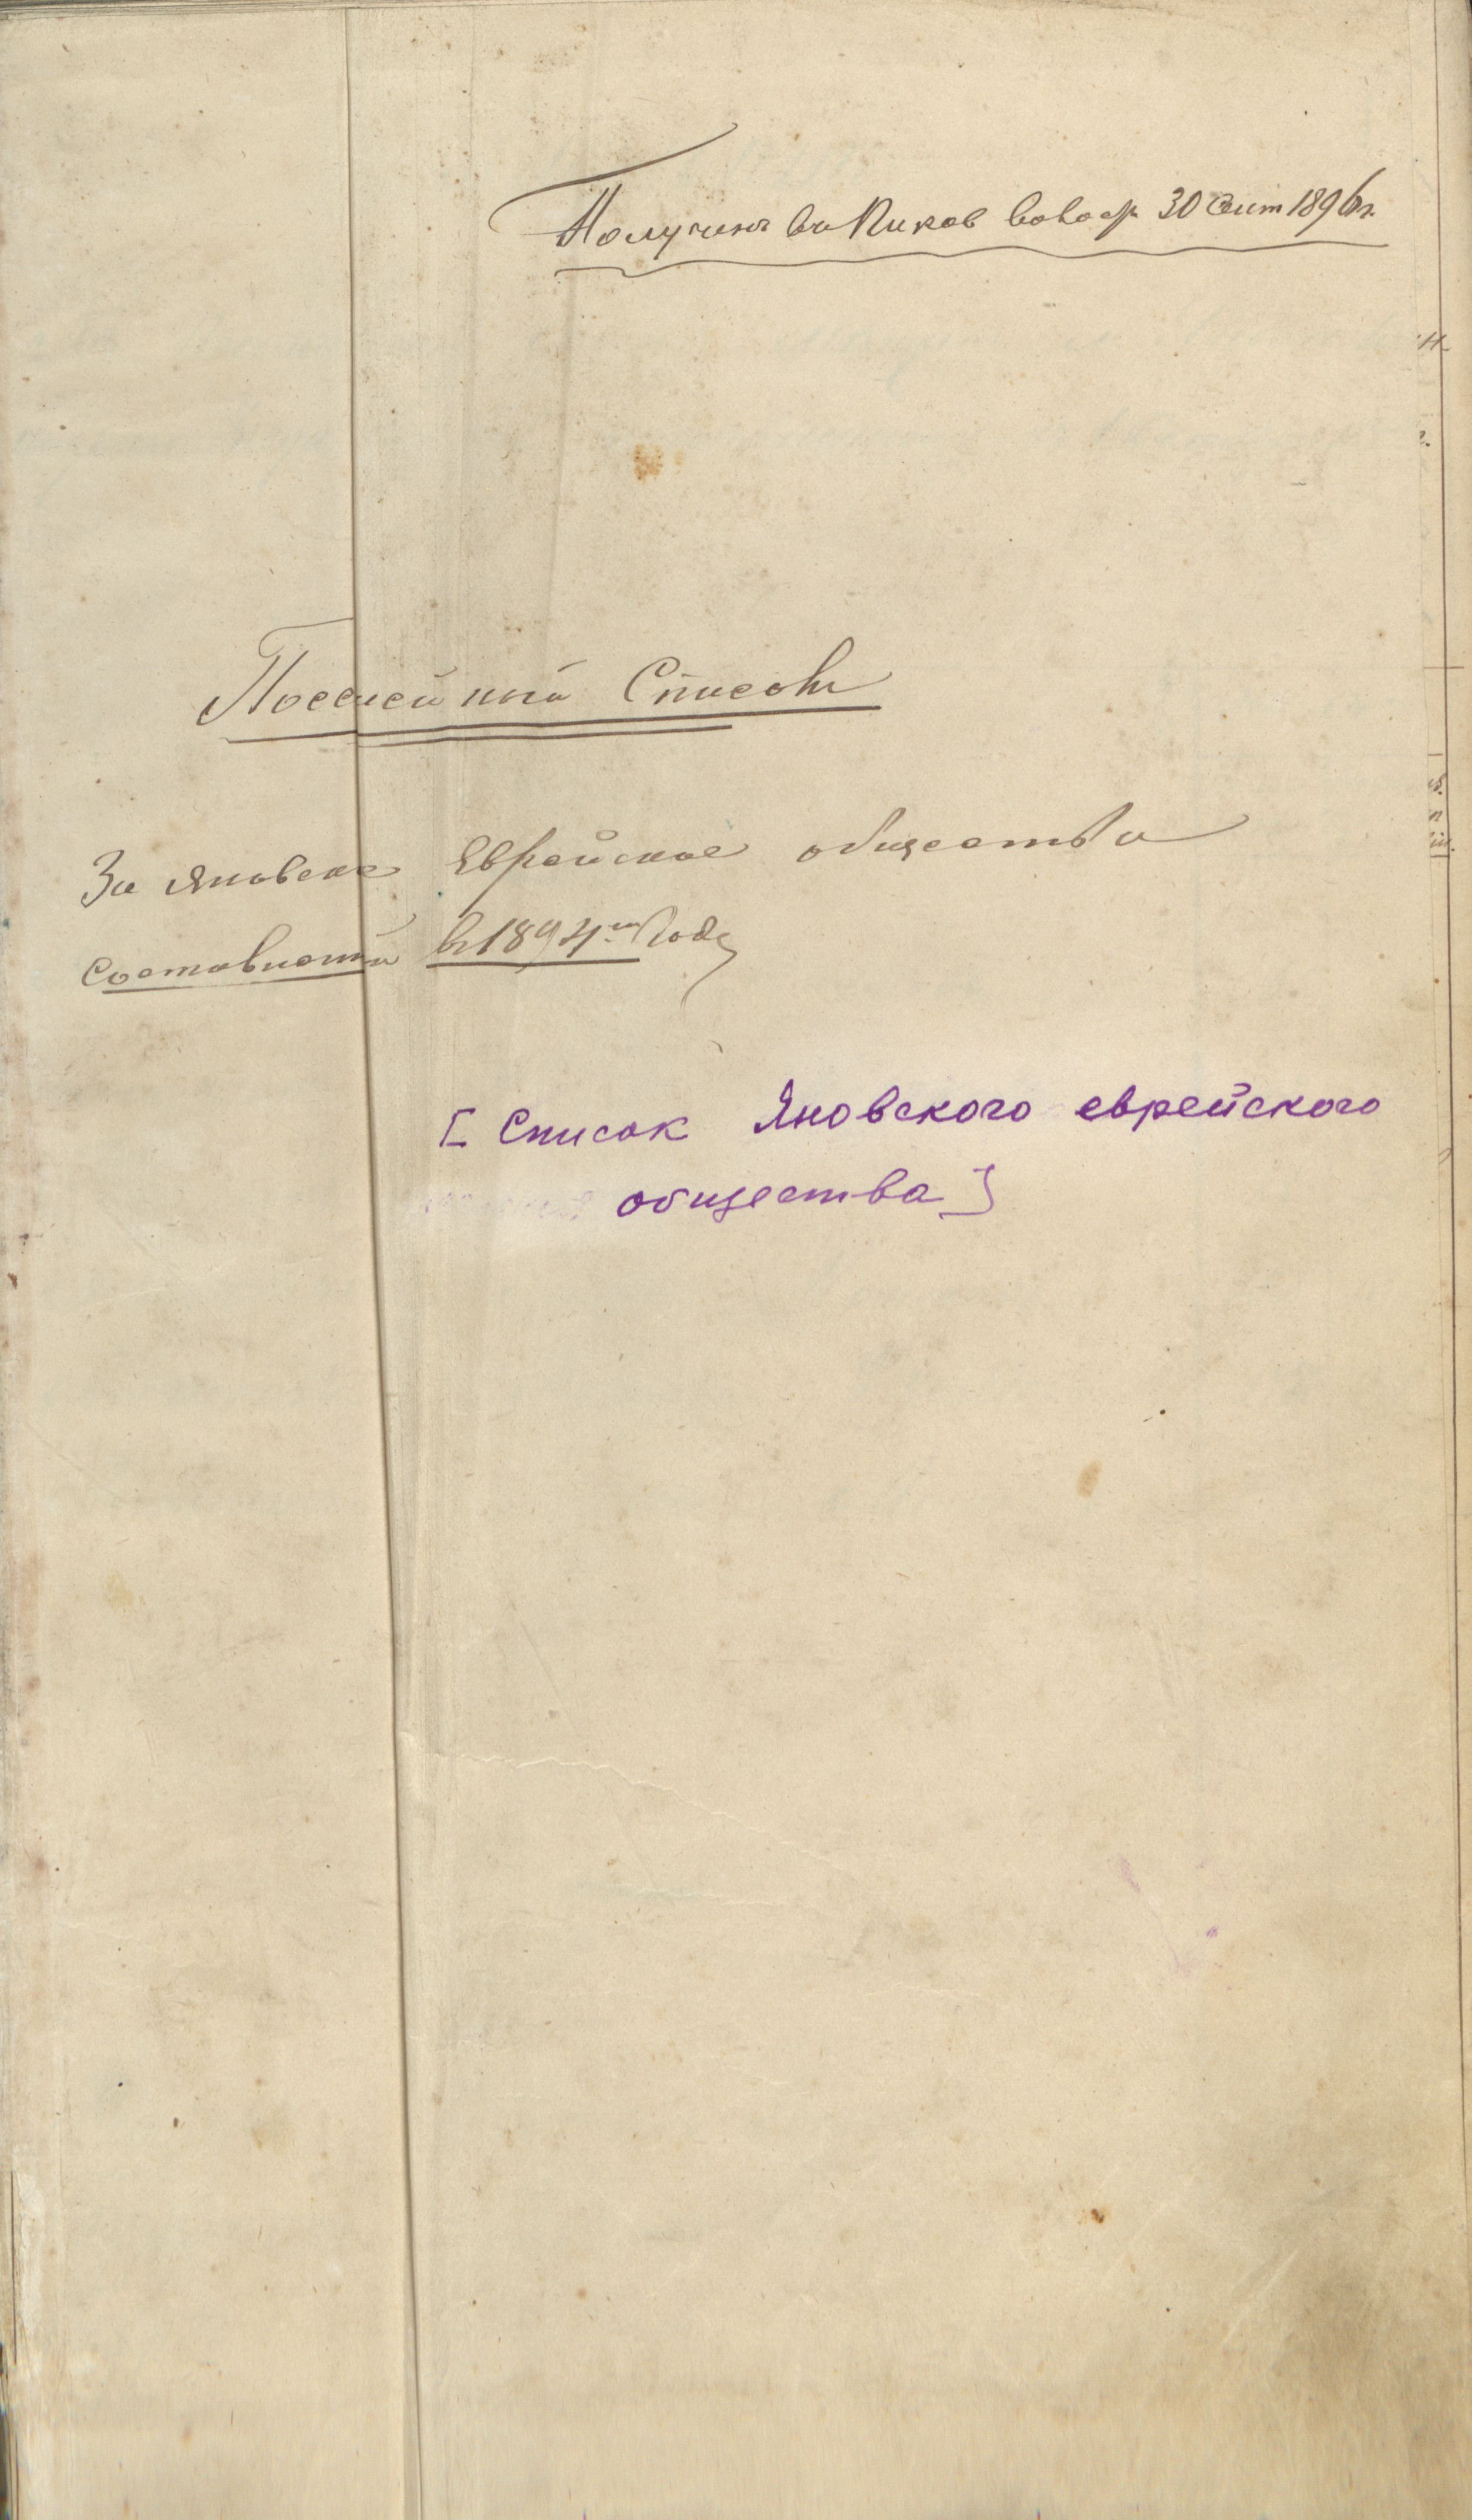 Получено въ Пиков волос 30 Сент 1896 г.
Посемейный Списокъ
За яновское Еврейское общества
составленый в 1894м Году
[ Список Яновского еврейского
общества ]